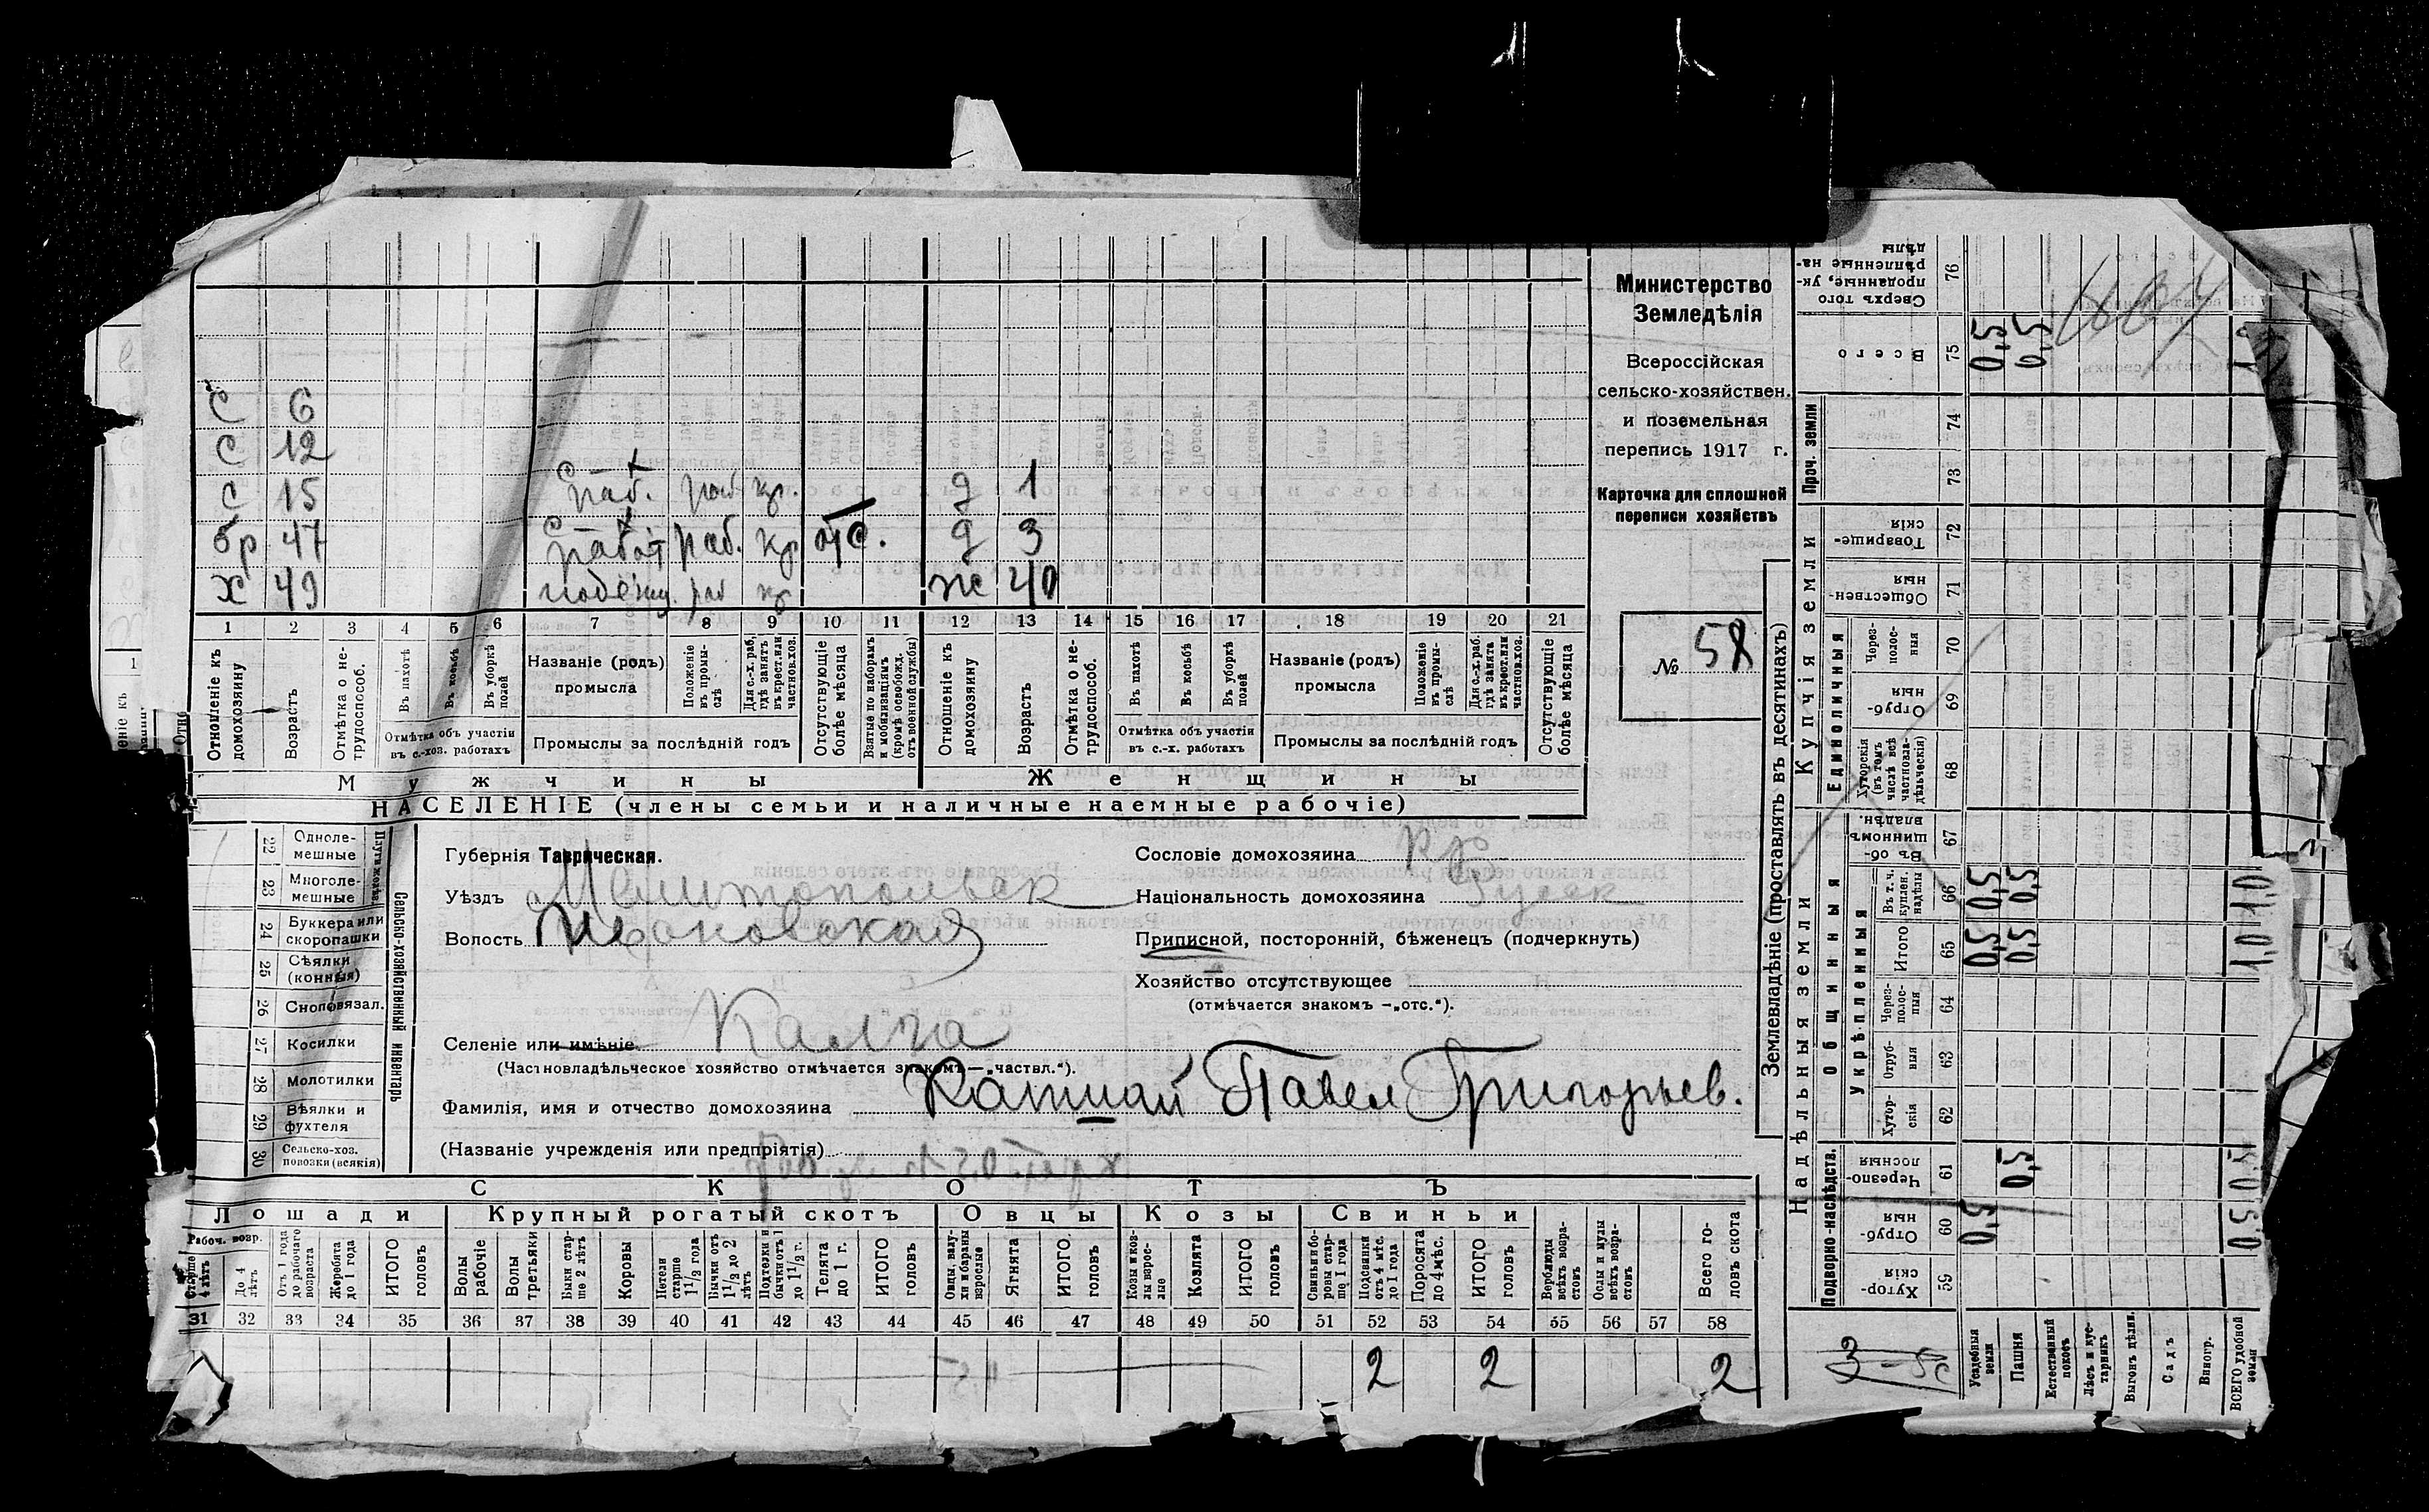 Министерство
Земледѣлія
Всероссійская
сельско-хозяйствен.
и поземельная
перепись 1917 г.
Карточка для сплошной
переписи хозяйствъ
№ 58
С 6
С 12
С 15 раб. раб кр. д 1
бр 47 работ раб. кр отс. д 3
х 49 раб кр ж 40
1 2 3 4 5 6 7 8 9 10 11 12 13 14 15 16 17 18 19 20 21
Отношеніе къ домохозяину
Возрастъ
Отмѣтка о не-трудоспособ.
Въ пахотѣ
Въ косьбѣ
Въ уборкѣ полей
Отмѣтка объ участіи въ с.-хоз. работахъ
Названіе (родъ) промысла
Положеніе въ промы-слѣ
Для с.-х. раб, гдѣ занятъ въ крест. или частнов. хоз.
Промыслы за послѣдній годъ
Отсутствующіе болѣе мѣсяца
Взятые по наборамъ и мобилизаціямъ (кромѣ освобожд. отъ военной службы)
Отношеніе къ домохозяину
Возрастъ
Отмѣтка о не-трудоспособ.
Въ пахотѣ
Въ косьбѣ
Въ уборкѣ полей
Отмѣтка объ участіи въ с.-х. работахъ
Названіе (родъ) промысла
Положеніе въ промы-слѣ
Для с.-х. раб. гдѣ занята въ крест. или частнов. хоз.
Промыслы за послѣдній годъ
Отсутствующіе болѣе мѣсяца
Мужчины Женщины
НАСЕЛЕНІЕ (члены семьи и наличные наемные рабочіе)
22 Одноле-мешные
23 Многоле-мешные
24 Буккера или скоропашки
25 Сѣялки (конныя)
26 Сноповязал.
27 Косилки
28 Молотилки
29 Вѣялки и фухтеля
30 Сельско-хоз. повозки (всякія)
Сельско-хозяйственный инвентарь
Губернія Таврическая.
Уѣздъ Мелитопольск
Волость Ивановская
Селеніе или имѣніе Калга
(Частновладѣльческое хозяйство отмѣчается знакомъ—„частвл.“).
Фамилія, имя и отчество домохозяина Капшай Павел Григорьев.
(Названіе учрежденія или предпріятія)
Сословіе домохозяина кр
Національность домохозяина Русск
Приписной, посторонній, бѣженецъ (подчеркнуть)
Хозяйство отсутствующее
(отмѣчается знакомъ —„отс.“).
СКОТЪ
Лошади Крупный рогатый скотъ Овцы Козы Свиньи
Рабоч. возр.
Старше 4 лѣтъ
До 4 лѣтъ
Отъ 1 года до рабочаго возраста
Жеребята до 1 года
ИТОГО головъ
Волы рабочіе
Волы третьяки
Быки стар-ше 2 лѣтъ
Коровы
Нетели старше 1 1/2 года
Бычки отъ 1 1/2 до 2 лѣтъ
Подтелки и бычки отъ 1 до 1 1/2 г.
Телята до 1 г.
ИТОГО головъ
Овцы, валу-хи и бараны взрослые
Ягнята
ИТОГО головъ
Козы и коз-лы взрос-лые
Козлята
ИТОГО головъ
Свиньи и бо-ровы стар-ше 1 года
Подсвинки отъ 4 мѣс. до 1 года
Поросята до 4 мѣс.
ИТОГО головъ
Верблюды всѣхъ возра-стовъ
Ослы и мулы всѣхъ возра-стовъ
Всего го-ловъ скота
31 32 33 34 35 36 37 38 39 40 41 42 43 44 45 46 47 48 49 50 51 52 53 54 55 56 57 58
2 2 2
Землевладѣніе (проставлять въ десятинахъ)
Надѣльныя земли Купчія земли Проч. земли
Подворно-наслѣдств.
Общинныя
Укрѣпленныя
Единоличныя
76 Сверхъ того проданные, ук-рѣпленные на-дѣлы
75 Всего 0,5 0,5
74
73
72 Товарище-скія
71 Обществен-ныя
70 Через-полос-ныя
69 Отруб-ныя
68 Хуторскія (въ томъ числѣ всѣ частновла-дѣльческія)
67 Въ об-щинномъ владѣн.
66 Въ т. ч. куплен. надѣлы 0,5 0,5 1,0
65 Итого 0,5 0,5 1,0
64 Через-полос-ныя
63 Отруб-ныя
62 Хутор-скія
61 Черезпо-лосныя 0,5 0,5
60 Отруб-ныя 0,5 0,5
59 Хутор-скія
Усадебныя земли
Пашня
Естественный покосъ
Лѣсъ и кус-тарникъ
Выгонъ цѣлин.
Садъ
Виногр.
ВСЕГО удобной земли